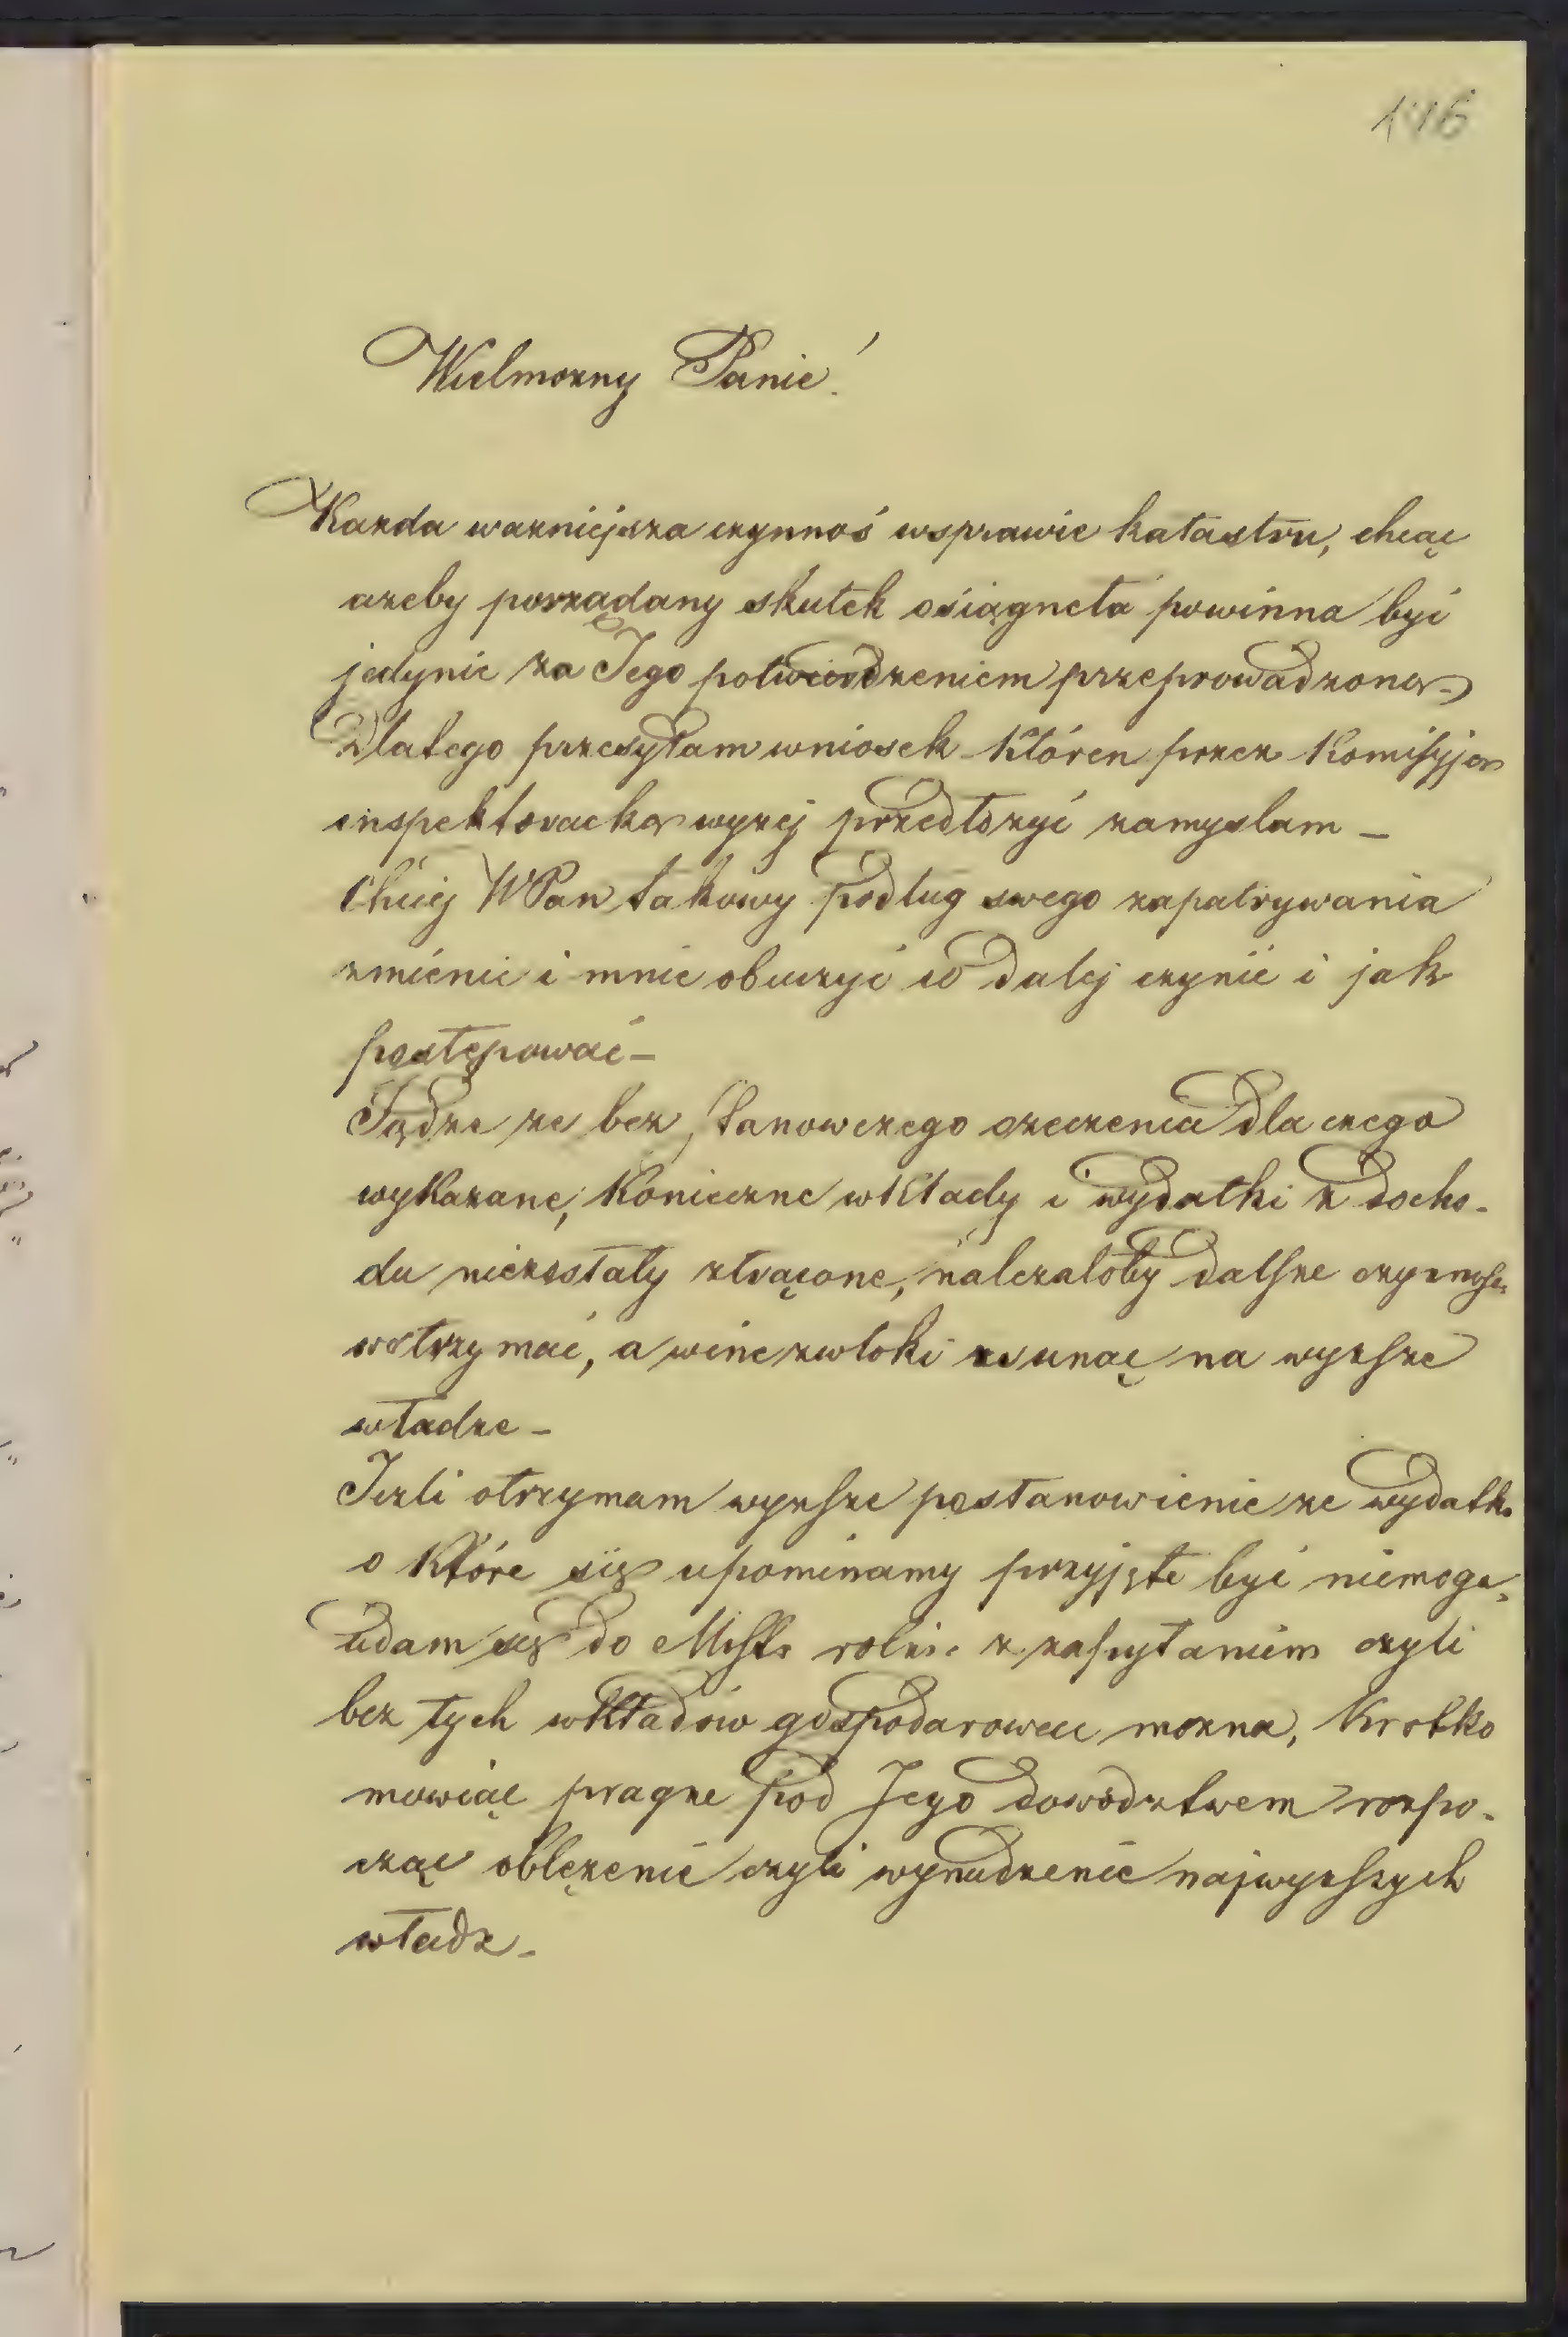 146
Wielmozny Panie!
Kazda wazniejsza czynnoś wsprawie katastru, chcąc
azeby porządany skutek osiągneta powinna być
jedynie za Jego potwierdzeniem przeprowadzona
Dlatego przesyłam wniosek któren przez Komisyja
inspektoracka wyzej przedłozyć zamyslam –
Chciej WPan takowy podług swego zapatrywania
zmienic i mnie obuczyć co dalej czynić i jak
postępować –
Sądze ze bez stanowczego orzeczenia dla czego
wykazane, konieczne wkłady i wydatki z docho-
du niezostały ztrącone, nalezałoby dalsze czynnosci
wstrzymać, a wine zwłoki zsunąć na wyzsze
władze –
Jezli otrzymam wyzsze postanowienie ze wydatki
o które się upominamy przyjęte być niemoga,
udam się do rolni. z zapytaniem czyli
bez tych wkładów gospodarowac mozna, krotko
mowiąc pragne pod Jego dowodztwem rozpo-
cząc oblęzenie czyli wynudzenie najwyzszych
władz –